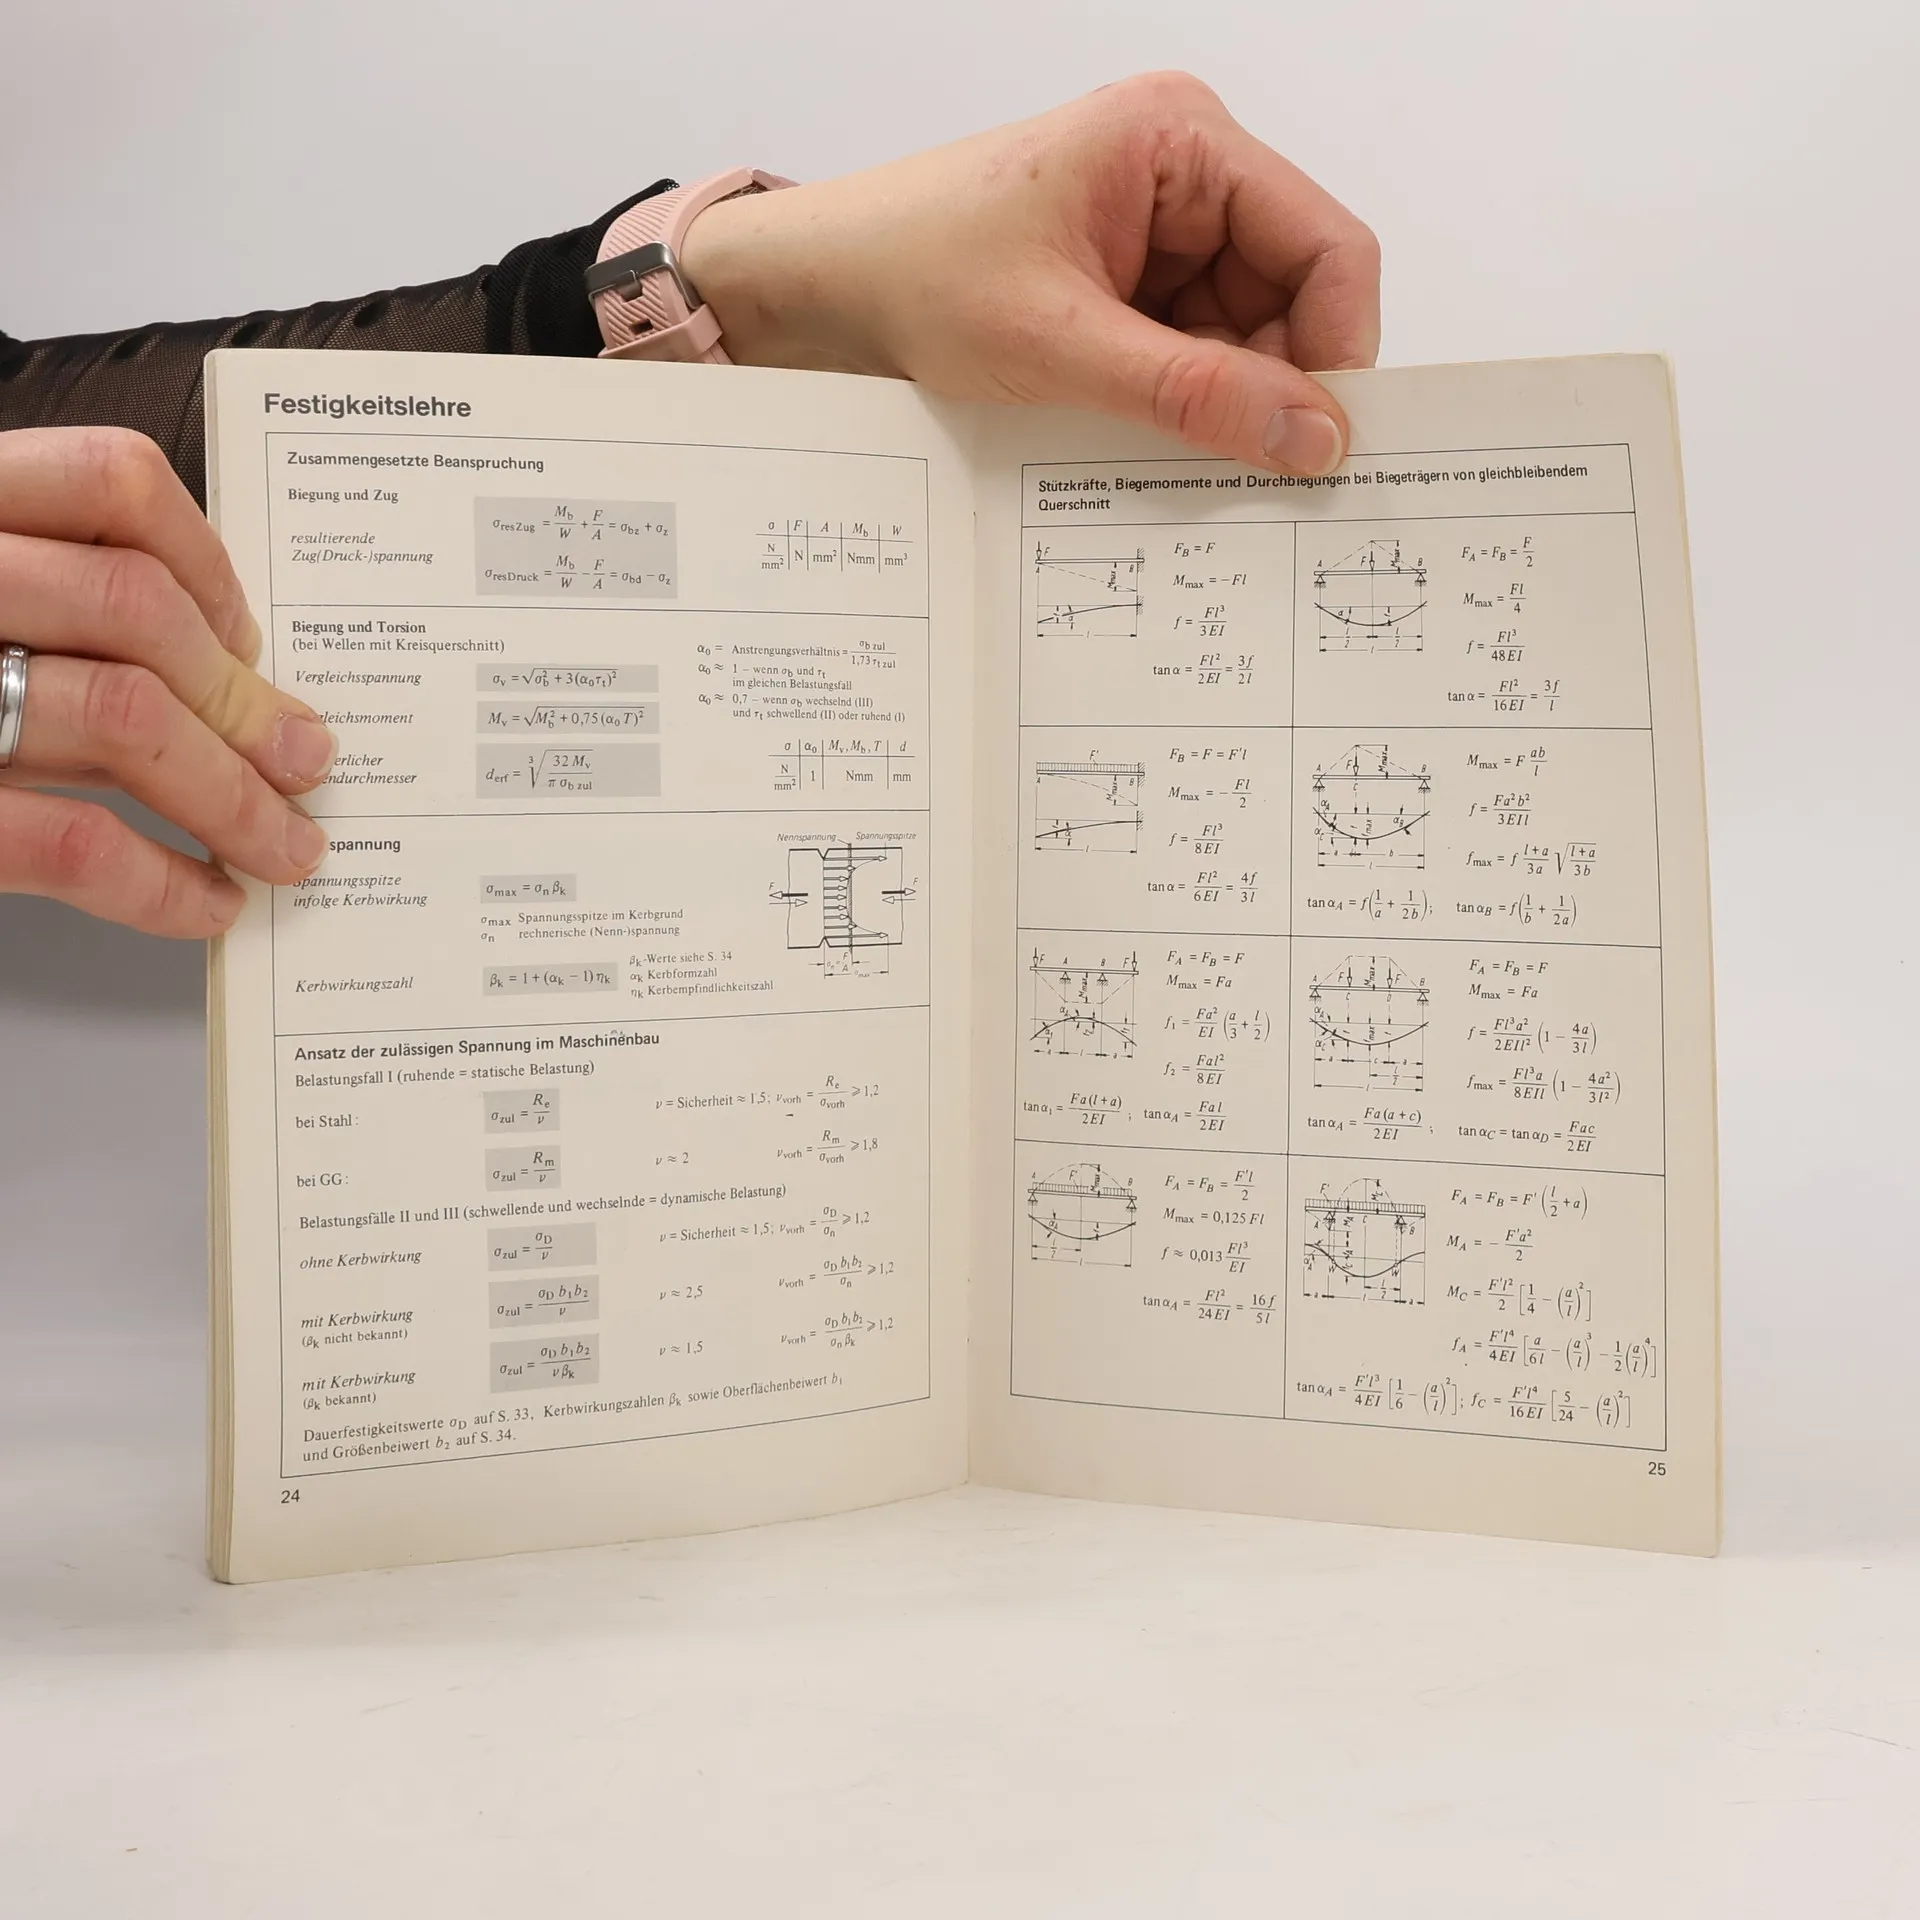 Festigkeitslehre
Zusammengesetzte Beanspruchung
Biegung und Zug
resultierende
Zug(Druck-)spannung
σ_resZug = M_b/W + F/A = σ_bz + σ_z
σ_resDruck = M_b/W − F/A = σ_bd − σ_z
σ | F | A | M_b | W
N/mm² | N | mm² | Nmm | mm³
Biegung und Torsion
(bei Wellen mit Kreisquerschnitt)
Vergleichsspannung
σ_v = √(σ_b² + 3(α₀τ_t)²)
gleichsmoment
M_v = √(M_b² + 0,75(α₀T)²)
erlicher
endurchmesser
d_erf = ³√(32 M_v / π σ_b zul)
α₀ = Anstrengungsverhältnis = σ_b zul / 1,73 τ_t zul
α₀ ≈ 1 – wenn σ_b und τ_t
im gleichen Belastungsfall
α₀ ≈ 0,7 – wenn σ_b wechselnd (III)
und τ_t schwellend (II) oder ruhend (I)
σ | α₀ | M_v, M_b, T | d
N/mm² | 1 | Nmm | mm
spannung
Spannungsspitze
infolge Kerbwirkung
σ_max = σ_n β_k
σ_max Spannungsspitze im Kerbgrund
σ_n rechnerische (Nenn-)spannung
Kerbwirkungszahl
β_k = 1 + (α_k − 1) η_k
β_k-Werte siehe S. 34
α_k Kerbformzahl
η_k Kerbempfindlichkeitszahl
Nennspannung Spannungsspitze
F F
σ_n = F/A
σ_max
Ansatz der zulässigen Spannung im Maschinenbau
Belastungsfall I (ruhende = statische Belastung)
bei Stahl: σ_zul = R_e/ν ν = Sicherheit ≈ 1,5; ν_vorh = R_e/σ_vorh ⩾ 1,2
bei GG: σ_zul = R_m/ν ν ≈ 2 ν_vorh = R_m/σ_vorh ⩾ 1,8
Belastungsfälle II und III (schwellende und wechselnde = dynamische Belastung)
ohne Kerbwirkung σ_zul = σ_D/ν ν = Sicherheit ≈ 1,5; ν_vorh = σ_D/σ_n ⩾ 1,2
mit Kerbwirkung σ_zul = σ_D b₁b₂/ν ν ≈ 2,5 ν_vorh = σ_D b₁b₂/σ_n ⩾ 1,2
(β_k nicht bekannt)
mit Kerbwirkung σ_zul = σ_D b₁b₂/ν β_k ν ≈ 1,5 ν_vorh = σ_D b₁b₂/σ_n β_k ⩾ 1,2
(β_k bekannt)
Dauerfestigkeitswerte σ_D auf S. 33, Kerbwirkungszahlen β_k sowie Oberflächenbeiwert b₁
und Größenbeiwert b₂ auf S. 34.
24
Stützkräfte, Biegemomente und Durchbiegungen bei Biegeträgern von gleichbleibendem
Querschnitt
F_B = F
M_max = −Fl
f = Fl³/3EI
tan α = Fl²/2EI = 3f/2l
F_A = F_B = F/2
M_max = Fl/4
f = Fl³/48EI
tan α = Fl²/16EI = 3f/l
F_B = F = F'l
M_max = − Fl/2
f = Fl³/8EI
tan α = Fl²/6EI = 4f/3l
M_max = F ab/l
f = Fa²b²/3EIl
f_max = f (l+a)/3a √((l+a)/3b)
tan α_A = f(1/a + 1/2b); tan α_B = f(1/b + 1/2a)
F_A = F_B = F
M_max = Fa
f₁ = Fa²/EI (a/3 + l/2)
f₂ = Fal²/8EI
tan α₁ = Fa(l+a)/2EI; tan α_A = Fal/2EI
F_A = F_B = F
M_max = Fa
f = Fl³a²/2EIl² (1 − 4a/3l)
f_max = Fl³a/8EIl (1 − 4a²/3l²)
tan α_A = Fa(a+c)/2EI; tan α_C = tan α_D = Fac/2EI
F_A = F_B = F'l/2
M_max = 0,125 Fl
f ≈ 0,013 Fl³/EI
tan α_A = Fl²/24EI = 16f/5l
F_A = F_B = F'(l/2 + a)
M_A = − F'a²/2
M_C = F'l²/2 [1/4 − (a/l)²]
f_A = F'l⁴/4EI [a/6l − (a/l)³ − 1/2(a/l)⁴]
tan α_A = F'l³/4EI [1/6 − (a/l)²]; f_C = F'l⁴/16EI [5/24 − (a/l)²]
25